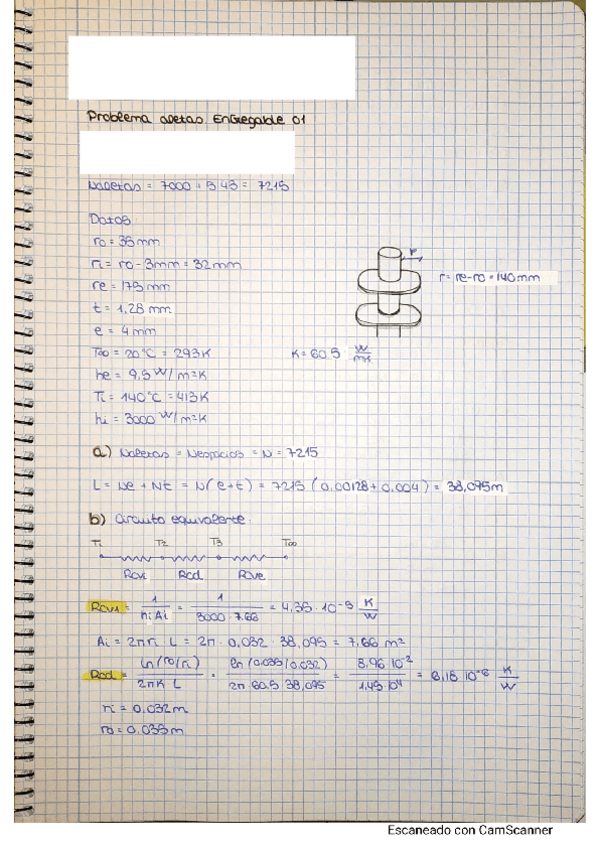 Problema aletas Entregable 01
Naletas = 7000 + 5·43 = 7215
Datos
ro = 35mm
ri = ro - 3mm = 32mm
re = 175mm
r = re-ro = 140mm
t = 1,28 mm
e = 4 mm
T∞ = 20°C = 293K
K = 60.5 W/mK
he = 9,5 W/m²K
Ti = 140°C = 413K
hi = 3000 W/m²K
a) Naletas = Nespacios = N = 7215
L = Ne + Nt = N(e+t) = 7215 (0.00128 + 0.004) = 38,095m
b) Circuito equivalente.
Ti T2 T3 T∞
Rcvi Rcd Rcve
Rcvi = 1/hi Ai = 1/3000·7.66 = 4,35·10⁻⁵ K/W
Ai = 2πri L = 2π · 0,032 · 38,095 = 7,66 m²
Rcd = ln(ro/ri)/2πK L = ln(0.035/0.032)/2π·60.5·38,095 = 8.96·10⁻²/1,45·10⁴ = 6,18·10⁻⁶ K/W
ri = 0,032m
ro = 0,035m
Escaneado con CamScanner